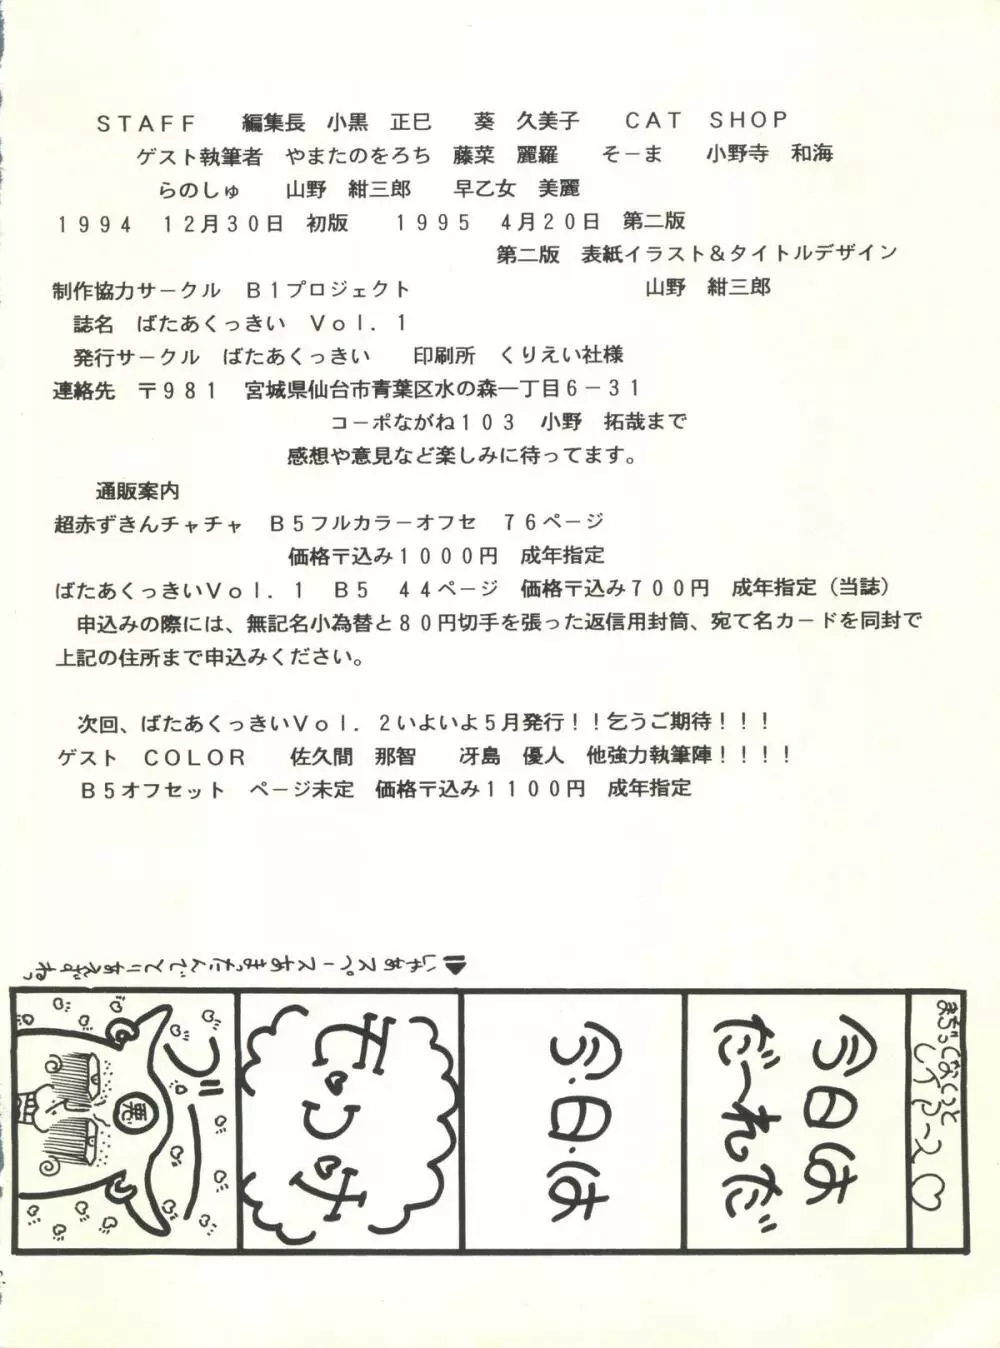 ＳＴＡＦＦ　　編集長　小黒　正巳　　葵　久美子　　ＣＡＴ　ＳＨＯＰ
ゲスト執筆者　やまたのをろち　藤菜　麗羅　　そーま　　小野寺　和海
らのしゅ　　山野　紺三郎　　早乙女　美麗
１９９４　１２月３０日　初版　　１９９５　４月２０日　第二版
第二版　表紙イラスト＆タイトルデザイン
制作協力サークル　Ｂ１プロジェクト　　山野　紺三郎
誌名　ばたあくっきい　Ｖｏｌ．１
発行サークル　ばたあくっきい　　印刷所　くりえい社様
連絡先　〒９８１　宮城県仙台市青葉区水の森一丁目６－３１
コーポながね１０３　小野　拓哉まで
感想や意見など楽しみに待ってます。
通販案内
超赤ずきんチャチャ　Ｂ５フルカラーオフセ　７６ページ
価格〒込み１０００円　成年指定
ばたあくっきいＶｏｌ．１　Ｂ５　４４ページ　価格〒込み７００円　成年指定（当誌）
申込みの際には、無記名小為替と８０円切手を張った返信用封筒、宛て名カードを同封で
上記の住所まで申込みください。
次回、ばたあくっきいＶｏｌ．２いよいよ５月発行！！乞うご期待！！！
ゲスト　ＣＯＬＯＲ　　佐久間　那智　　冴島　優人　他強力執筆陣！！！！
Ｂ５オフセット　ページ未定　価格〒込み１１００円　成年指定
じゃあスペースあまったんでとりあえずねっ
今日は
だ〜れだ
今・日・は
悪